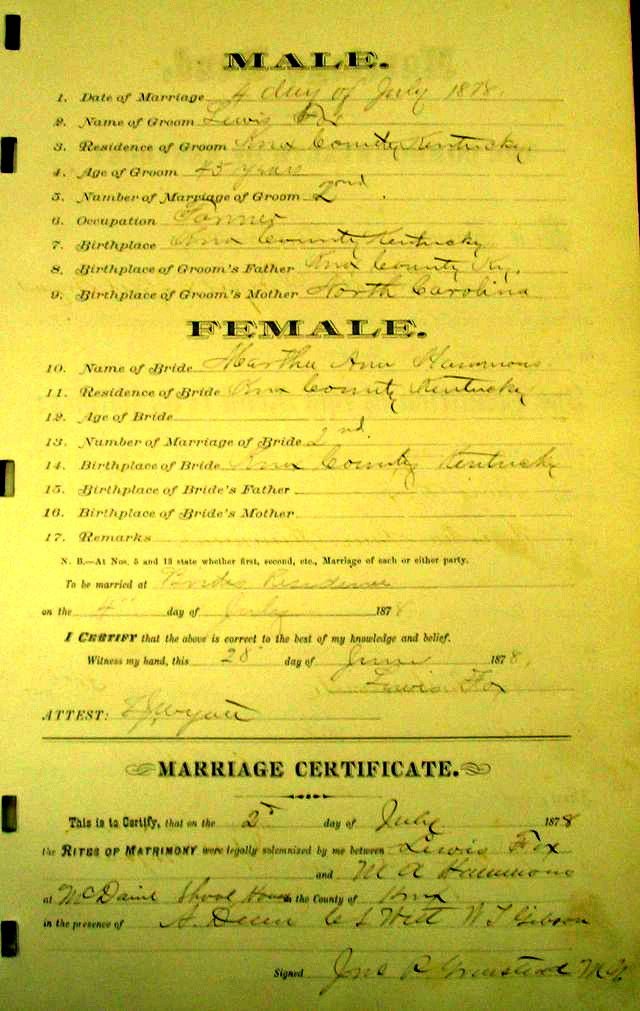 MALE.
1. Date of Marriage 4 day of July 1878.
2. Name of Groom Lewis Fox
3. Residence of Groom Knox County Kentucky.
4. Age of Groom 45 years
5. Number of Marriage of Groom 2ond.
6. Occupation Farmer
7. Birthplace Knox County Kentucky
8. Birthplace of Groom's Father Knox County Ky.
9. Birthplace of Groom's Mother North Carolina
FEMALE.
10. Name of Bride Martha Ann Hammons
11. Residence of Bride Knox County Kentucky
12. Age of Bride
13. Number of Marriage of Bride 2nd.
14. Birthplace of Bride Knox County Kentucky
15. Birthplace of Bride's Father
16. Birthplace of Bride's Mother
17. Remarks
N. B.—At Nos. 5 and 13 state whether first, second, etc., Marriage of each or either party.
To be married at Brides Residence
on the 4" day of July 1878
I CERTIFY that the above is correct to the best of my knowledge and belief.
Witness my hand, this 28 day of June 1878.
Lewis Fox
ATTEST:
MARRIAGE CERTIFICATE.
This is to Certify, that on the day of July 1878
the RITES OF MATRIMONY were legally solemnized by me between Lewis Fox
and M A Hammons
at School House in the County of Knox
in the presence of A. W T Gibson
Signed Jno R